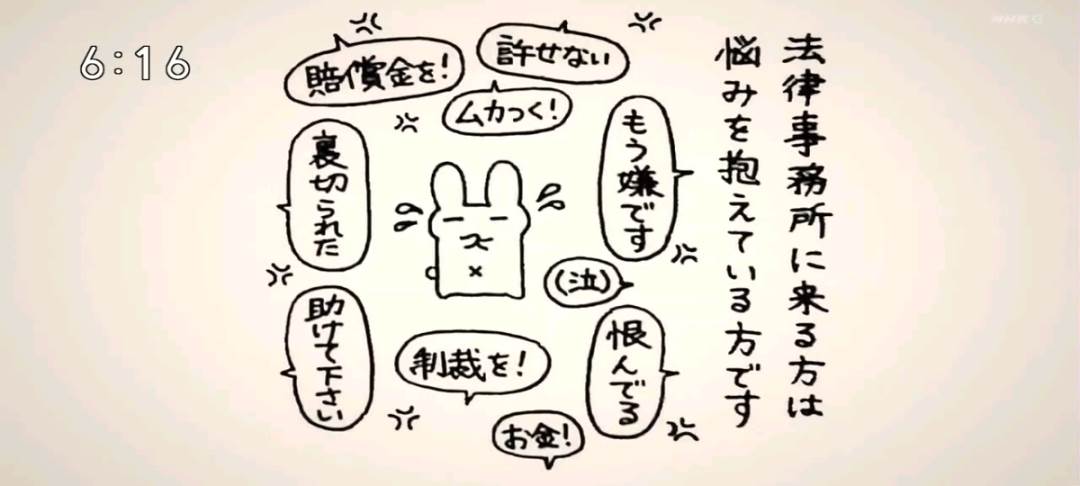 6:16
NHK G
法律事務所に来る方は
悩みを抱えている方です
許せない
賠償金を!
ムカっく!
もう嫌です
裏切られた
(泣)
恨んでる
助けて下さい
制裁を!
お金!